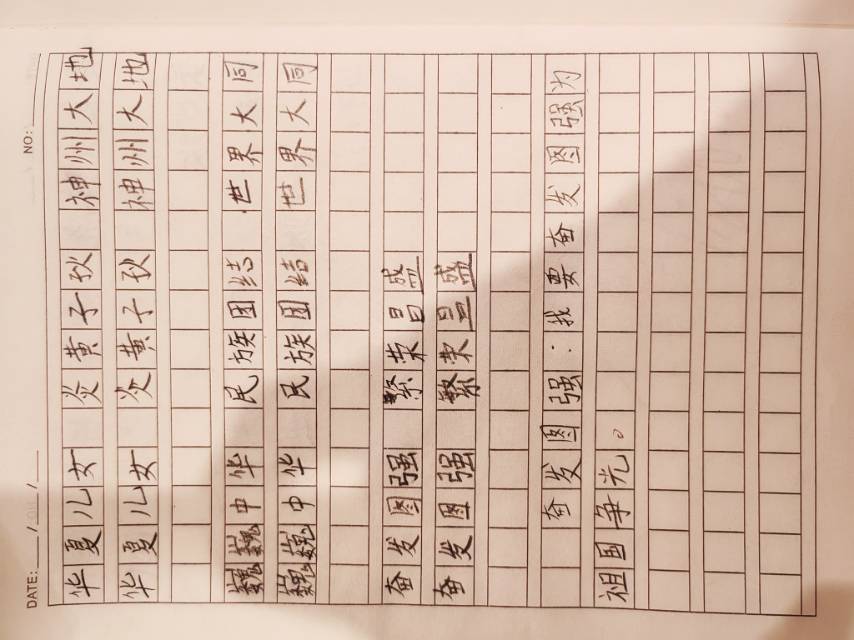 DATE: / / NO:
华夏儿女 炎黄子孙 神州大地
华夏儿女 炎黄子孙 神州大地
巍巍中华 民族团结 世界大同
巍巍中华 民族团结 世界大同
奋发图强 繁荣昌盛
奋发图强 繁荣昌盛
奋发图强:我要奋发图强为
祖国争光。